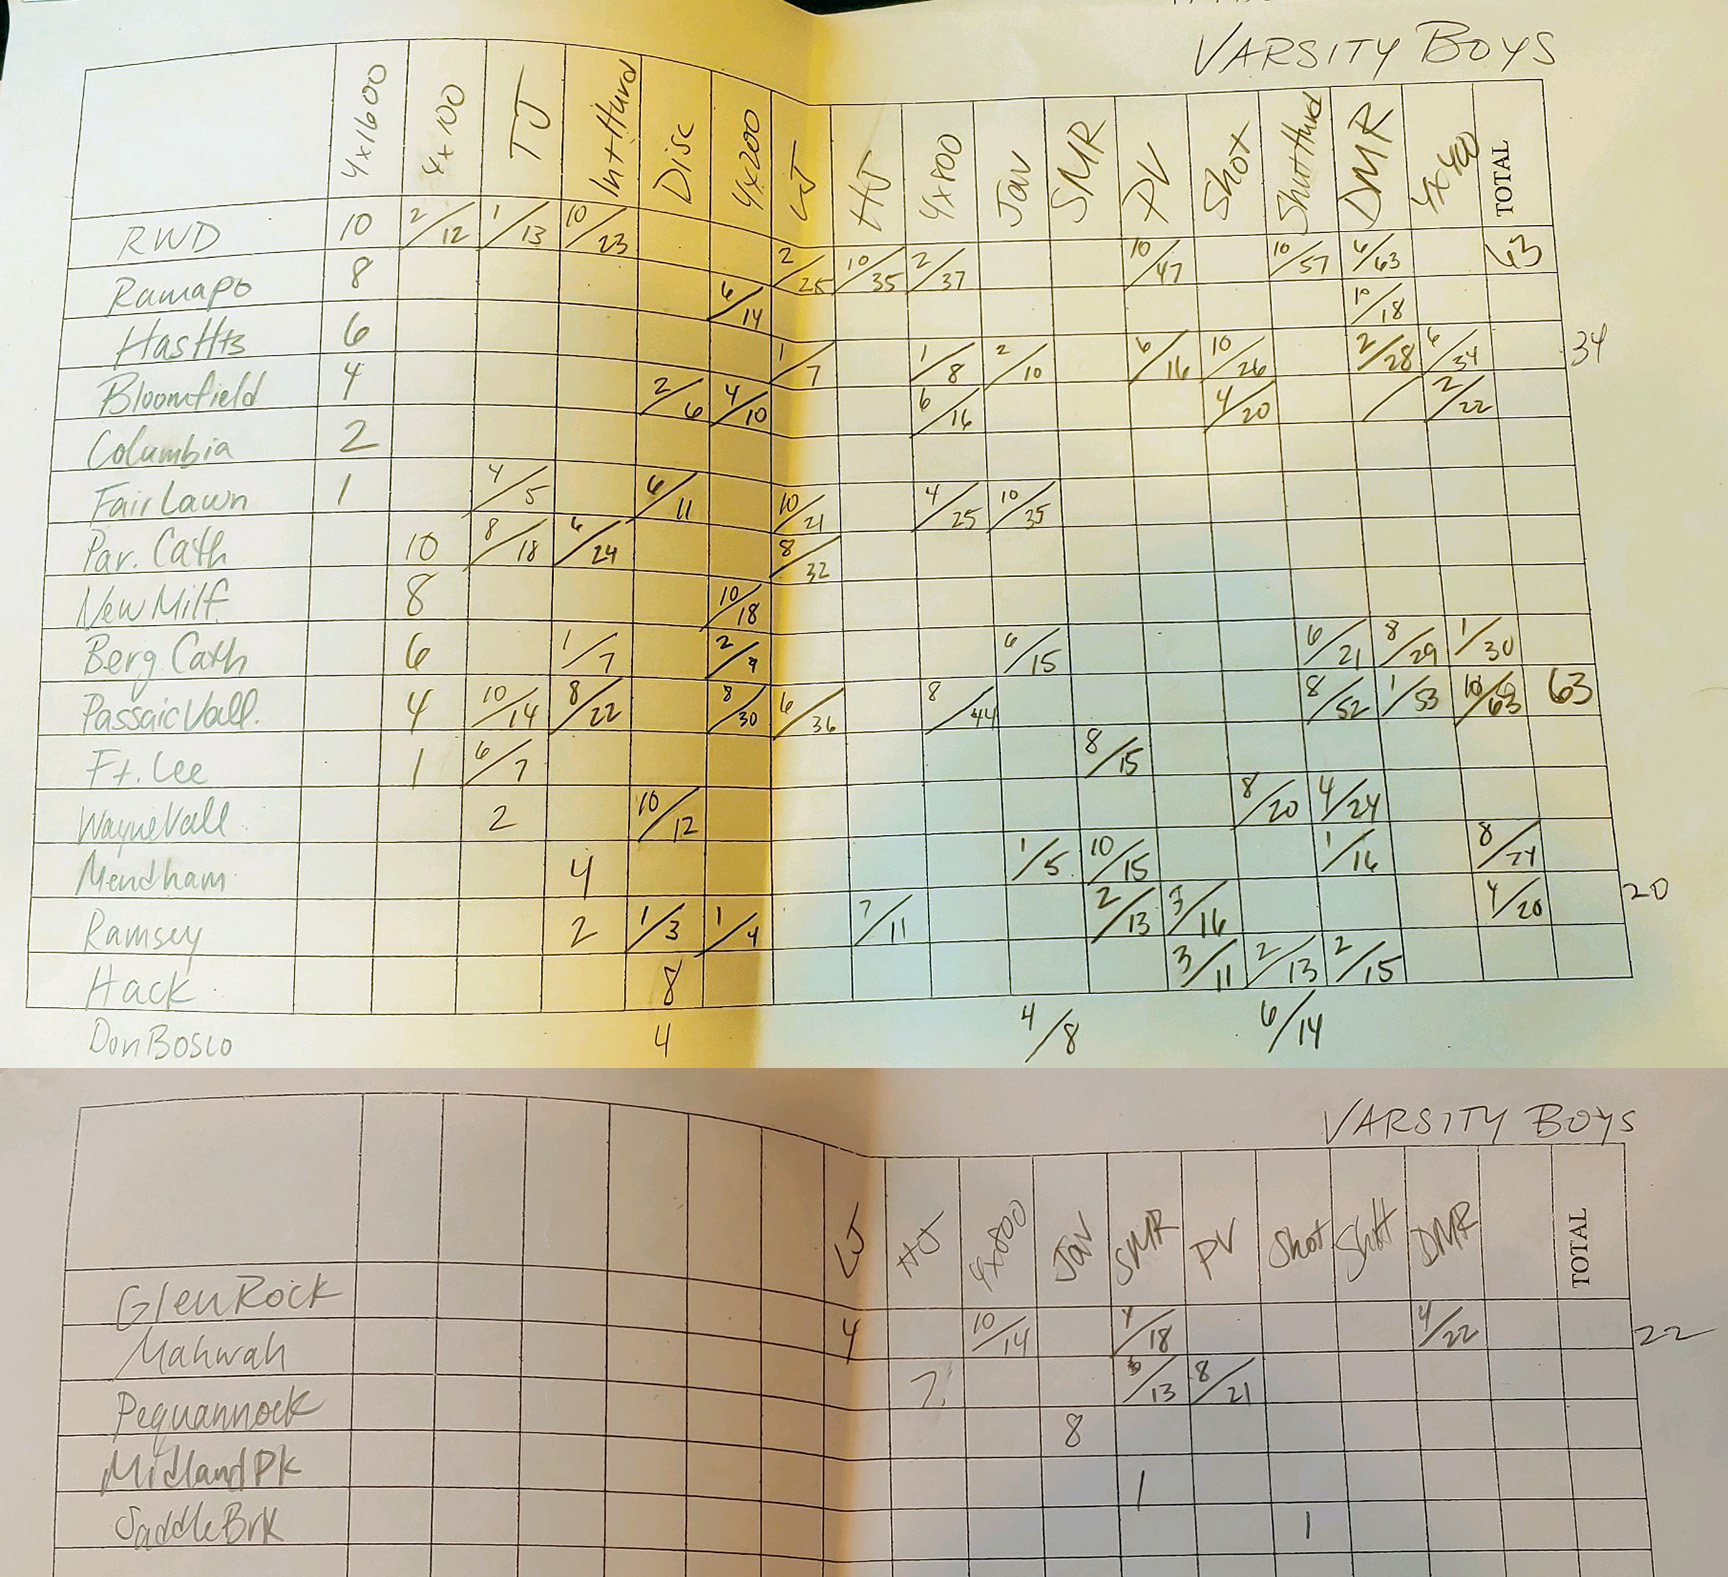 VARSITY BOYS
4x1600 4x100 TJ Int Hurd Disc 4x200 LJ HJ 4x800 Jav SMR PV Shot Shutt Hurd DMR 4x400 TOTAL
RWD 10 2/12 1/13 10/23 2/25 10/35 2/37 10/47 10/57 6/63 63
Ramapo 8 6/14 10/18
Has Hts 6 1/7 1/8 2/10 6/16 10/26 2/28 6/34 34
Bloomfield 4 2/6 4/10 6/16 4/20 / 2/22
Columbia 2
Fair Lawn 1 4/5 6/11 10/21 4/25 10/35
Par. Cath 10 8/18 6/24 8/32
New Milf. 8 10/18
Berg Cath 6 1/7 2/9 6/15 6/21 8/29 1/30
Passaic Vall. 4 10/14 8/22 8/30 6/36 8/44 8/52 1/53 10/63 63
Ft. Lee 1 6/7 8/15
Wayne Vall 2 10/12 8/20 4/24
Mendham 4 1/5 10/15 1/16 8/24
Ramsey 2 1/3 1/4 7/11 2/13 3/16 4/20 20
Hack 8 3/11 2/13 2/15
Don Bosco 4 4/8 6/14
VARSITY BOYS
LJ HJ 4x800 Jav SMR PV Shot ShtH DMR TOTAL
Glen Rock 4 10/14 4/18 4/22 22
Mahwah 7. /13 8/21
Pequannock 8
Midland Pk 1
Saddle Brk 1